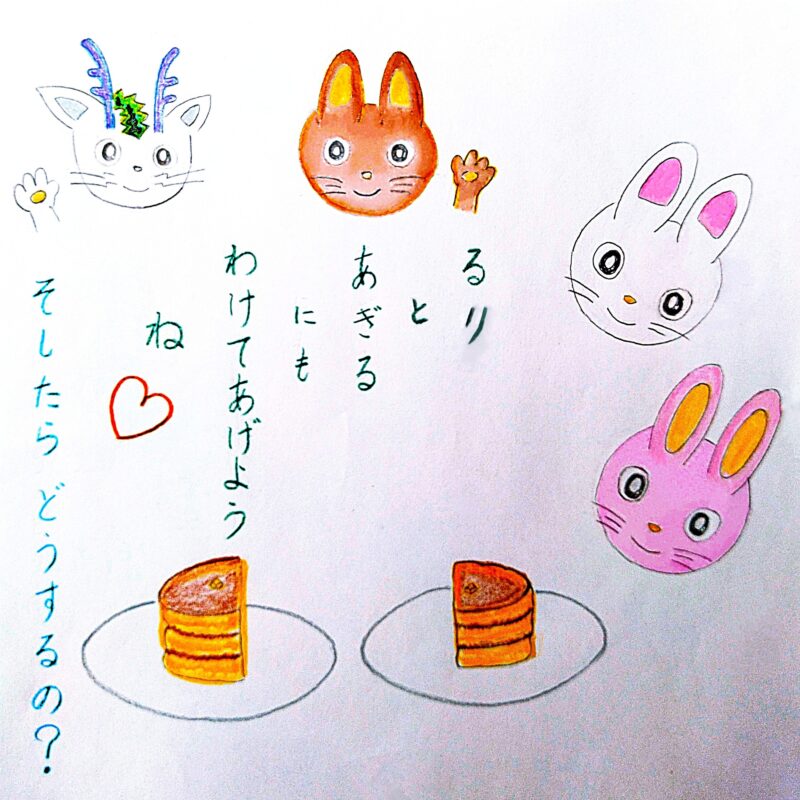 るり
と
あぎる
にも
わけてあげよう
ね
そしたら どうするの?